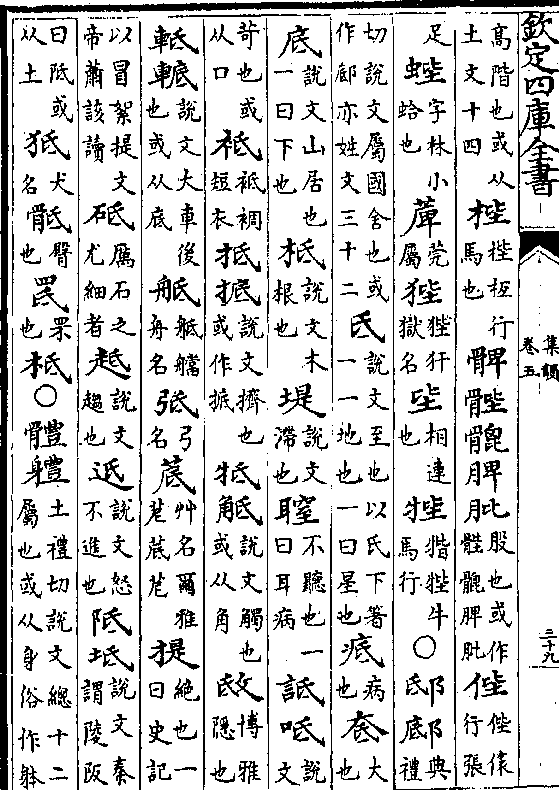 欽定四庫全書
集韻
卷五
三十九
高階也或从土文十四 梐梐枑行馬也 髀䯗髖脾肶股也或作䯗髖脾肶 𠈺𠈺儴行張
足 蜌字林小蛤也 䕯莞屬 狴狴犴獄名 坒相連也 㸬㹇㸬牛馬行 ○ 邸𨸝典禮
切說文屬國舍也或作𨸝亦姓文三十二 氐說文至也以氏下著一一地也一曰星也 疷病也 奃大也
底說文山居也一曰下也 柢說文木根也 堤說文滯也 聜不聽也一曰耳病 詆呧說文
苛也或从口 袛袛裯短衣 抵㧗說文擠也或作掋 牴觝說文觸也或从角 䟡博雅隱也
軧𨋀說文大車後也或从底 䑛䑛艡舟名 弤弓名 菧艸名爾雅苨菧苨 提絕也一曰史記
以冒絮提文帝蕭該讀 砥厲石之尤細者 趆說文趨也 𨒛說文怒不進也 阺坻說文秦謂陵阪
曰阺或从土 㹝犬名 骶臀也 罠罘也 柢 ○ 體軆土禮切說文總十二屬也或从身俗作躰